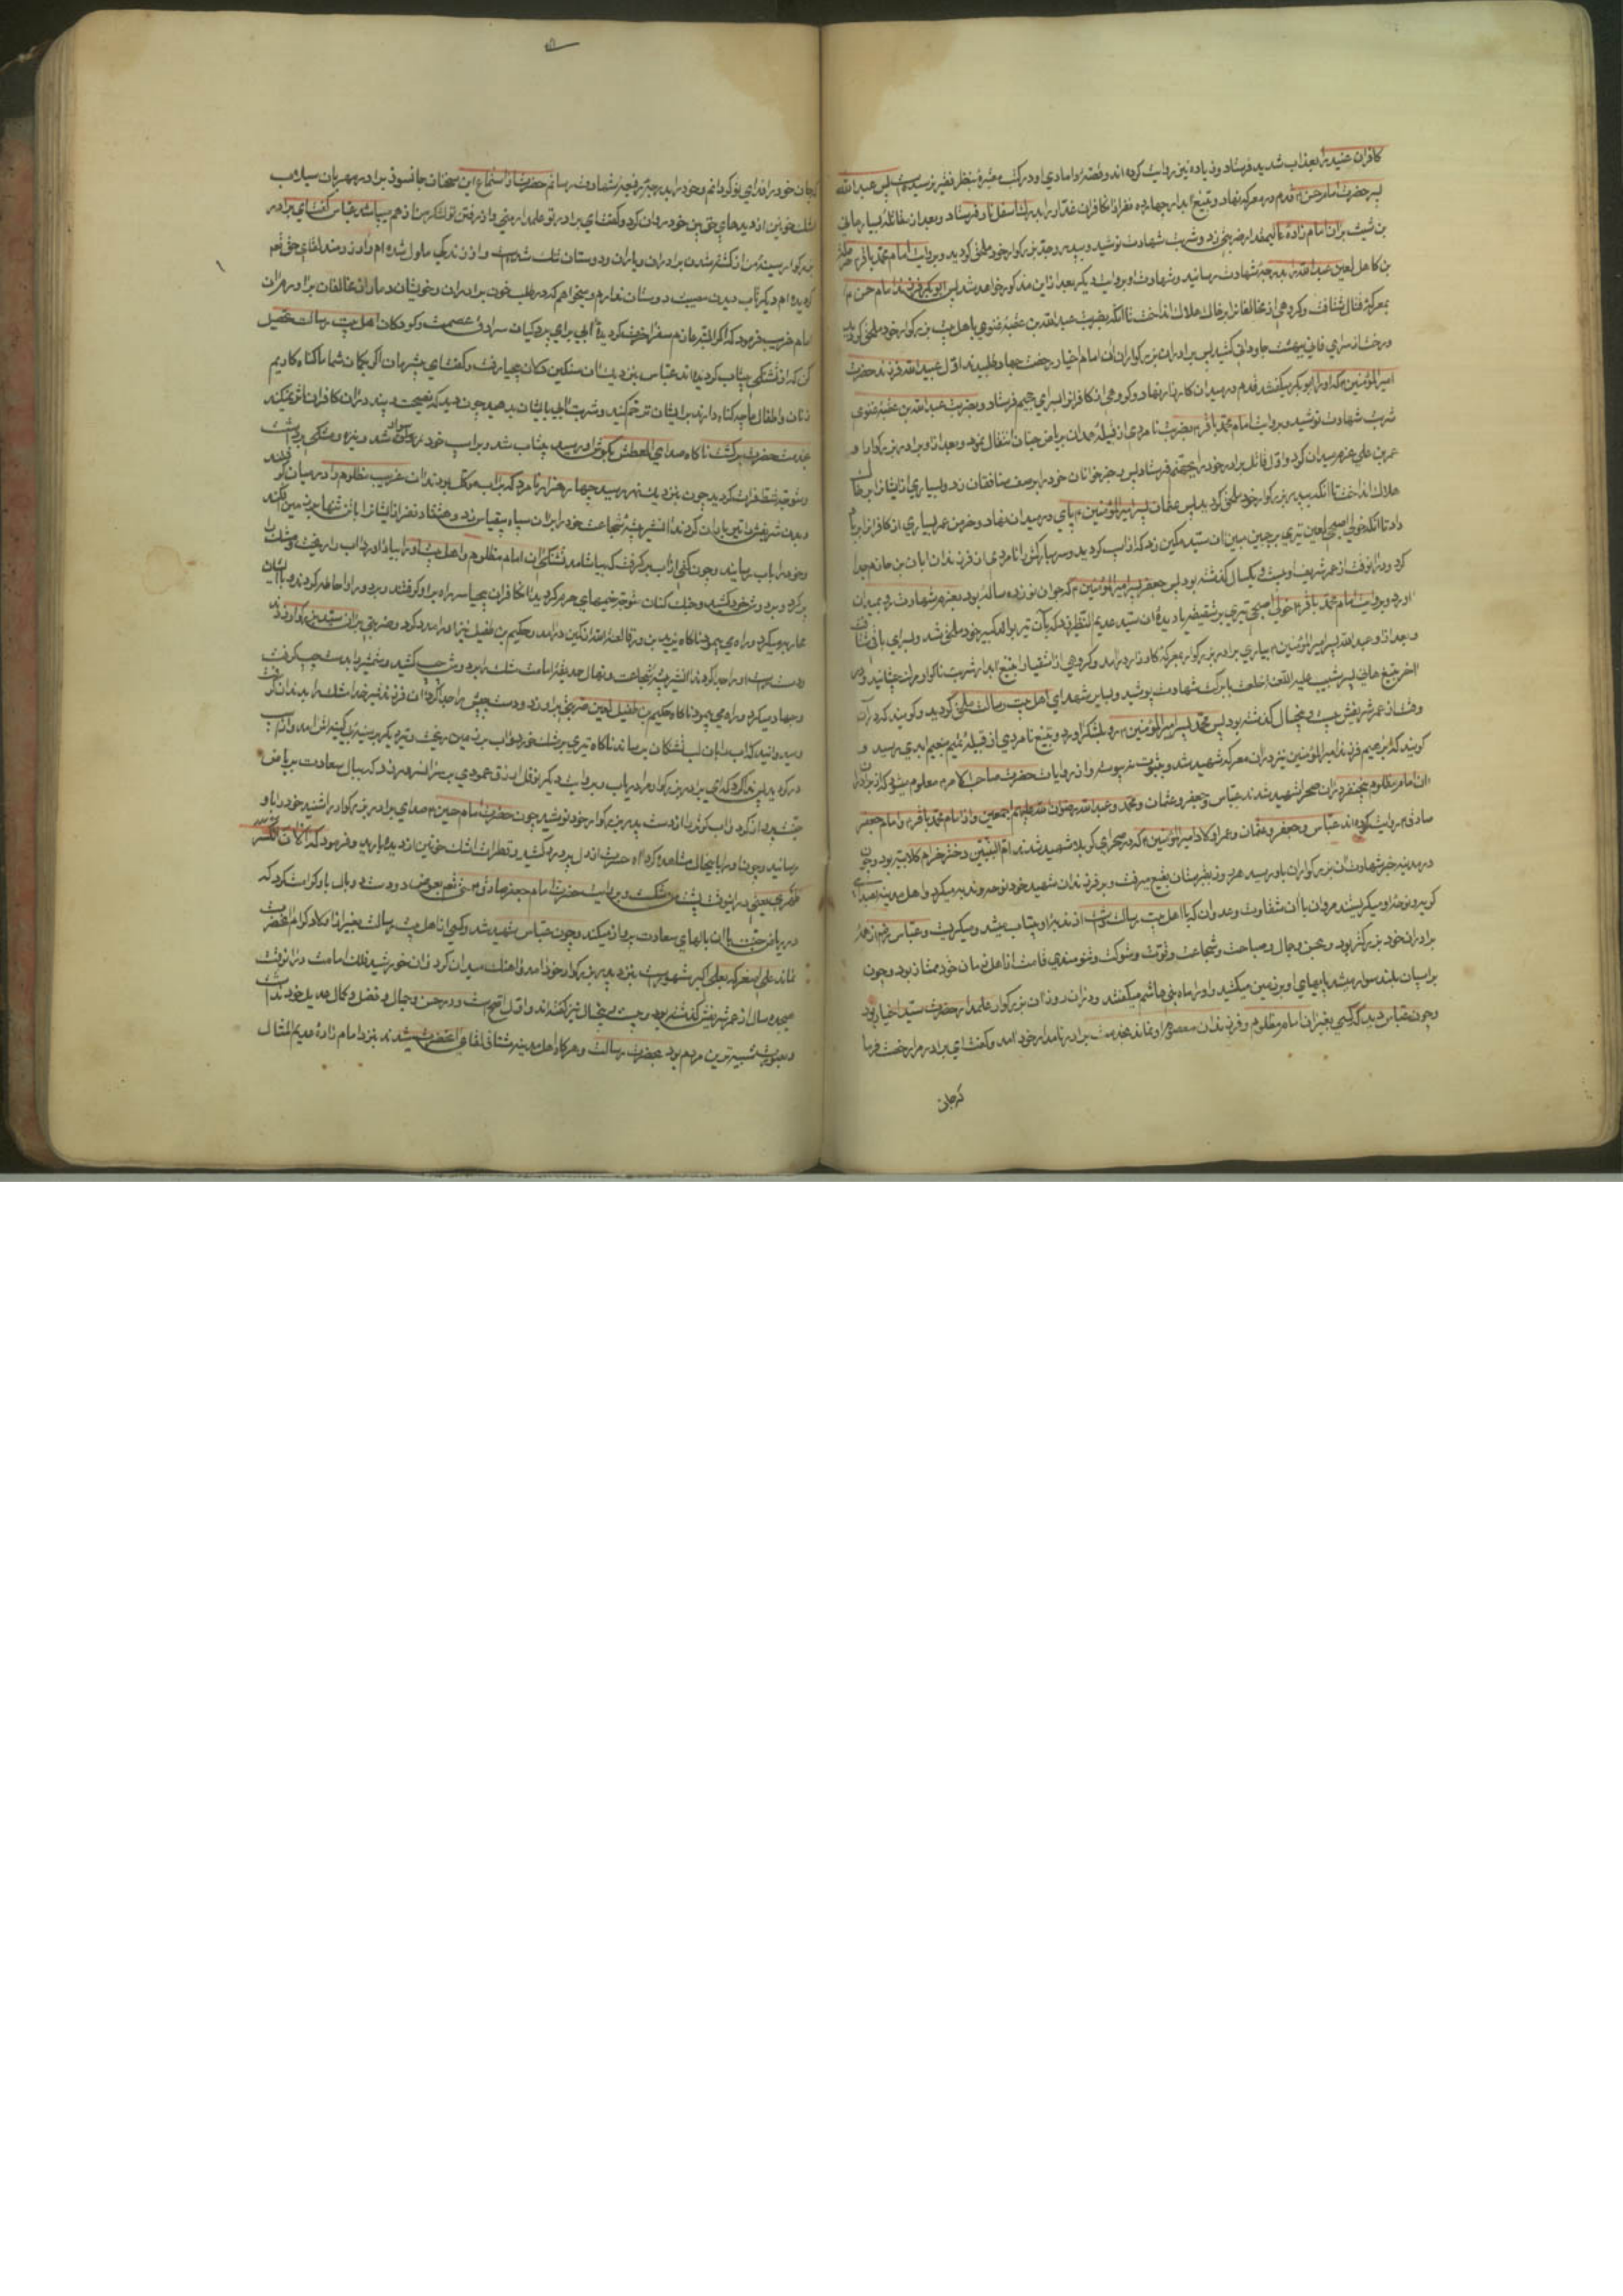 کافران عنید را بعذاب شدید فرستاد و زیاده نیز روایت کرده اند و قصّه دامادی او در کتب معتبره بنظر فقیر نرسیده است پس عبد الله
پسر حضرت امام حسن ع قدم در معرکه نهاد و بتیغ ابدار چهارده نفر از ان کافران غدّار را بدرک اسفل نار فرستاد و بعد از مقاتله بسیار هانی
بن شبیث بران امام زاده عالیمقدار ضربتی زد و شربت شهادت نوشید و بپدر و جدّ بزرکوار خود ملحق کردید و بروایت امام محمّد باقر ع حرمله
بن کاهل لعین عبد الله را بدرجه شهادت رسانید و شهادت او بروایت دیکر بعد از این مذکور خواهد شد پس ابو بکر فرزند امام حسن ع
بمعرکه قتال شتافت و کروهی از مخالفانرا بر خاک هلاک انداخت تا انکه بضربت عبد الله بن عقبه غنوی باهل بیت بزرکوار خود ملحق کردید
و رخت از سرای فانی ببهشت جاودانی کشید پس برادران بزرکواران ان امام اخیار رخصت جهاد طلبیدند اوّل عبید الله فرزند حضرت
امیر المؤمنین ع که او را ابو بکر میکفتند قدم در میدان کارزار نهاد و کروهی از کافرانرا بسرای جحیم فرستاد و بضربت عبد الله بن عقبه غنوی
شربت شهادت نوشید و بروایت امام محمّد باقر ع بضربت نامردی از قبیله همدان بریاض جنان انتقال نمود و بعد از او برادر بزرکوار او
عمر بن علی عزم میدان کرد و اوّل قاتل برادر خود را بجهنّم فرستاد پس رجز خوانان خود را بر صف منافقان زد و بسیاری از ایشانرا بر خاک
هلاک انداخت تا انکه بپدر بزرکوار خود ملحق کردید پس عثمان پسر امیر المؤمنین ع پای در میدان نهاد و خرمن عمر بسیاری از کافرانرا بباد
داد تا انکه خولی اصبحی لعین تیری بر جبین مبین ان سید مکین زد که از اسب کردید و سر مبارکش را نامردی از فرزندان ابان بن حازم جدا
کرد و در انوقت از عمر شریف او بیست و یکسال کذشته بود پس جعفر پسر امیر المؤمنین ع که جوان نوزده ساله بود بعزم شهادت رو بمیدان
اورد و بروایت امام محمّد باقر ع خولی اصبحی تیری بر شقیقه یا دیده ان سیّد عدیم النّظیر زد که بآن تیر بوالد کبیر خود ملحق شد و بسرای باقی شتافت
و بعد از او عبد الله پسر امیر المؤمنین ع بیاری برادر بزرکوار بمعرکه کارزار درامد و کروهی از اشقیا را بتیغ ابدار شربت ناکوار مرک چشانید و در
اخر بتیغ هانی پسر شبیب علیه اللّعن خلعت با برکت شهادت پوشید و بسایر شهدای اهل بیت رسالت ملحق کردید و کویند که در ان
وقت از عمر شریفش بیست و پنجسال کذشته بود پس محمّد پسر امیر المؤمنین ع رو بلشکر اورد و بتیغ نامردی از قبیله تمیم بنعیم ابدی رسید و
کویند که ابرهیم فرزند امیر المؤمنین نیز دران معرکه شهید شد و بثبوت نرسیده و از روایات حضرت صاحب الامر ع معلوم میشود که از برادران
ان امام مظلوم پنجنفر دران صحرا شهید شدند عبّاس و جعفر و عثمان و محمّد و عبد الله رضوان الله علیهم اجمعین و از امام محمّد باقر ع و امام جعفر
صادق ع روایت کرده اند عبّاس و جعفر و عثمان و عمر اولاد امیر المؤمنین ع که در صحرای کربلا شهید شدند امّ البنین دختر حزام کلابیه بود و چون
در مدینه خبر شهادت ان بزرکواران باو رسید هر روز بقبرستان بقیع میرفت و بر فرزندان شهید خود نوحه و ندبه میکرد و اهل مدینه بصدای
کریه و نوحه او میکریستند مروان با ان شقاوت و عدوان که با اهل بیت رسالت داشت از ندبه او بیتاب میشد و میکریست و عبّاس ع از همه
برادران خود بزرکتر بود و بحسن و جمال و صباحت و شجاعت و قوّت و شوکت و تنومندی قامت از اهل زمان خود ممتاز بود و چون
بر اسبان بلند سوار میشد پایهای او بر زمین میکشید و او را ماه بنی هاشم میکفتند و دران روز ان بزرکوار علمدار حضرت سیّد اخیار بود
و چون عبّاس دید که کسی بغیر از ان امام مظلوم و فرزندان معصوم او نماند بخدمت برادر نامدار خود امد و کفت ای برادر مرا رخصت فرما
که جان
که جان خود را فدای تو کردانم و خود را بدرجه رفیعه شهادت رسانم حضرت از استماع این سخنان جانسوز برادر مهربان سیلاب
اشک خونین از دیدهای حق بین خود روان کرد و کفت ای برادر تو علمدار منی و از رفتن تو لشکر من از هم میپاشد عبّاس کفت ای برادر
بزرکوار سینه من از کشته شدن برادران و یاران و دوستان تنک شده است و از زندکی ملول شده ام و ارزومند لقای حق تعالی
کردیده ام دیکر تاب دیدن مصیبت دوستان ندارم و میخواهم که در طلب خون برادران و خویشان دمار از مخالفان برارم ان
امام غریب فرمود که اکر البتّه عازم سفر اخرت کردیده ابی برای پردکیان سرادق عصمت و کودکان اهل بیت رسالت تحصیل
کن که از تشنکی بیتاب کردیده اند عبّاس بنزدیک ان سنکین دلان بیحیا رفت و کفت ای بیشرمان اکر بکمان شما ما کناه کاریم
زنان و اطفال ما چه کناه دارند بر ایشان ترحّم کنید و شربت ابی بایشان بدهید چون دید که نصیحت و پند دران کافران اثر نمیکند
بخدمت حضرت برکشت ناکاه صدای العطش بکوش او رسید بیتاب شد و بر اسب خود سوار شد و نیزه و مشکی برداشت
و متوجه شطّ فرات کردید چون بنزدیک نهر رسید چهار هزار نامرد که بر اب موکّل بودند ان غریب مظلوم را در میان کرفتند
و بدن شریفش را تیر باران کردند ان شیر بیشه شجاعت خود را بر ان سپاه بیقیاس زد و هشتاد نفر از ایشانرا با تن تنها بر زمین افکند
و خود را باب رسانید و چون کفی از اب برکرفت که بیاشامد تشنکی ان امام مظلوم و اهل بیت او را بیاد اورد اب را ریخت و مشک را
پر کرد و بر دوش خود کشید و جنک کنان متوجه خیمهای حرم کردید ان کافران بیحیا سر راه بر او کرفتند و بر دور او احاطه کردند و با ایشان
محاربه میکرد و راه می پیمود ناکاه نوفل بن ورقا لعنه الله از کمین درامد و حکیم بن طفیل نیز او را مدد کرد و ضربتی بران سیّد بزرکوار زدند
دست راست او را جدا کردند ان شیر بیشه شجاعت و نهال حدیقه امامت مشک را بر دوش چپ کشید و شمشیر را بدست چپ کرفت
و جهاد میکرد و راه می پیمود ناکاه حکیم بن طفیل لعین ضربتی بر او زد و دست چپش را جدا کرد ان فرزند شیر خدا مشک را بدندان کرفت
و اسب را میدوانید که اب را بان لب تشنکان برساند ناکاه تیری بر مشک خورد و اب بر زمین ریخت و تیر دیکر بر سینه بی کینه اش امد و از اسب
در کردید پس ندا کرد که ای برادر بزرکوار مرا دریاب و بروایت دیکر نوفل ازرق عمودی بر سر انسرور زد که ببال سعادت بریاض
جنّت پرواز کرد و اب کوثر از دست پدر بزرکوار خود نوشید چون حضرت امام حسین ع صدای برادر بزرکوار را شنید خود را باو
رسانید و چون او را بانحال مشاهده کرد اه حسرت از دل پر درد کشید و قطرات اشک خونین از دیده بارید و فرمود که الان انکسر
ظهری یعنی در اینوقت پشت من شکست و بروایت حضرت امام جعفر صادق ع حق تعالی بعوض دو دست دو بال باو کرامت کرد که
در ریاض جنّت با ان بالهای سعادت پرواز میکند و چون عبّاس شهید شد و کسی از اهل بیت رسالت بغیر از اولاد کرام انحضرت
نماند علی اصغر که بعلی اکبر مشهور است بنزد پدر بزرکوار خود امد و اهنک میدان کرد و ان خورشید فلک امامت در انوقت
هیجده سال از عمر شریفش کذشته بود و بیست و پنجسال نیز کفته اند و اوّل اصح است و در حسن و جمال و فضل و کمال عدیل خود نداشت
و بصورت شبیه ترین مردم بود بحضرت رسالت و هر کاه اهل مدینه مشتاق لقای انحضرت میشدند بنزد امام زاده عدیم المثال